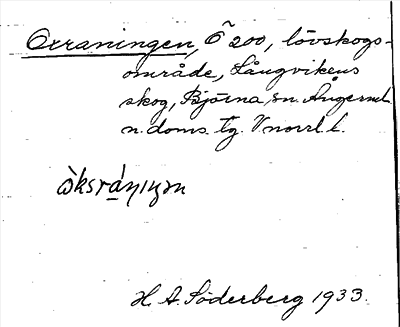 Oxraningen, Ö 200, lövskogs-
område, Långvikens
skog, Björna sn. Ångermel.
n. doms. tg. Vnorrl l.
H. A. Söderberg 1933.